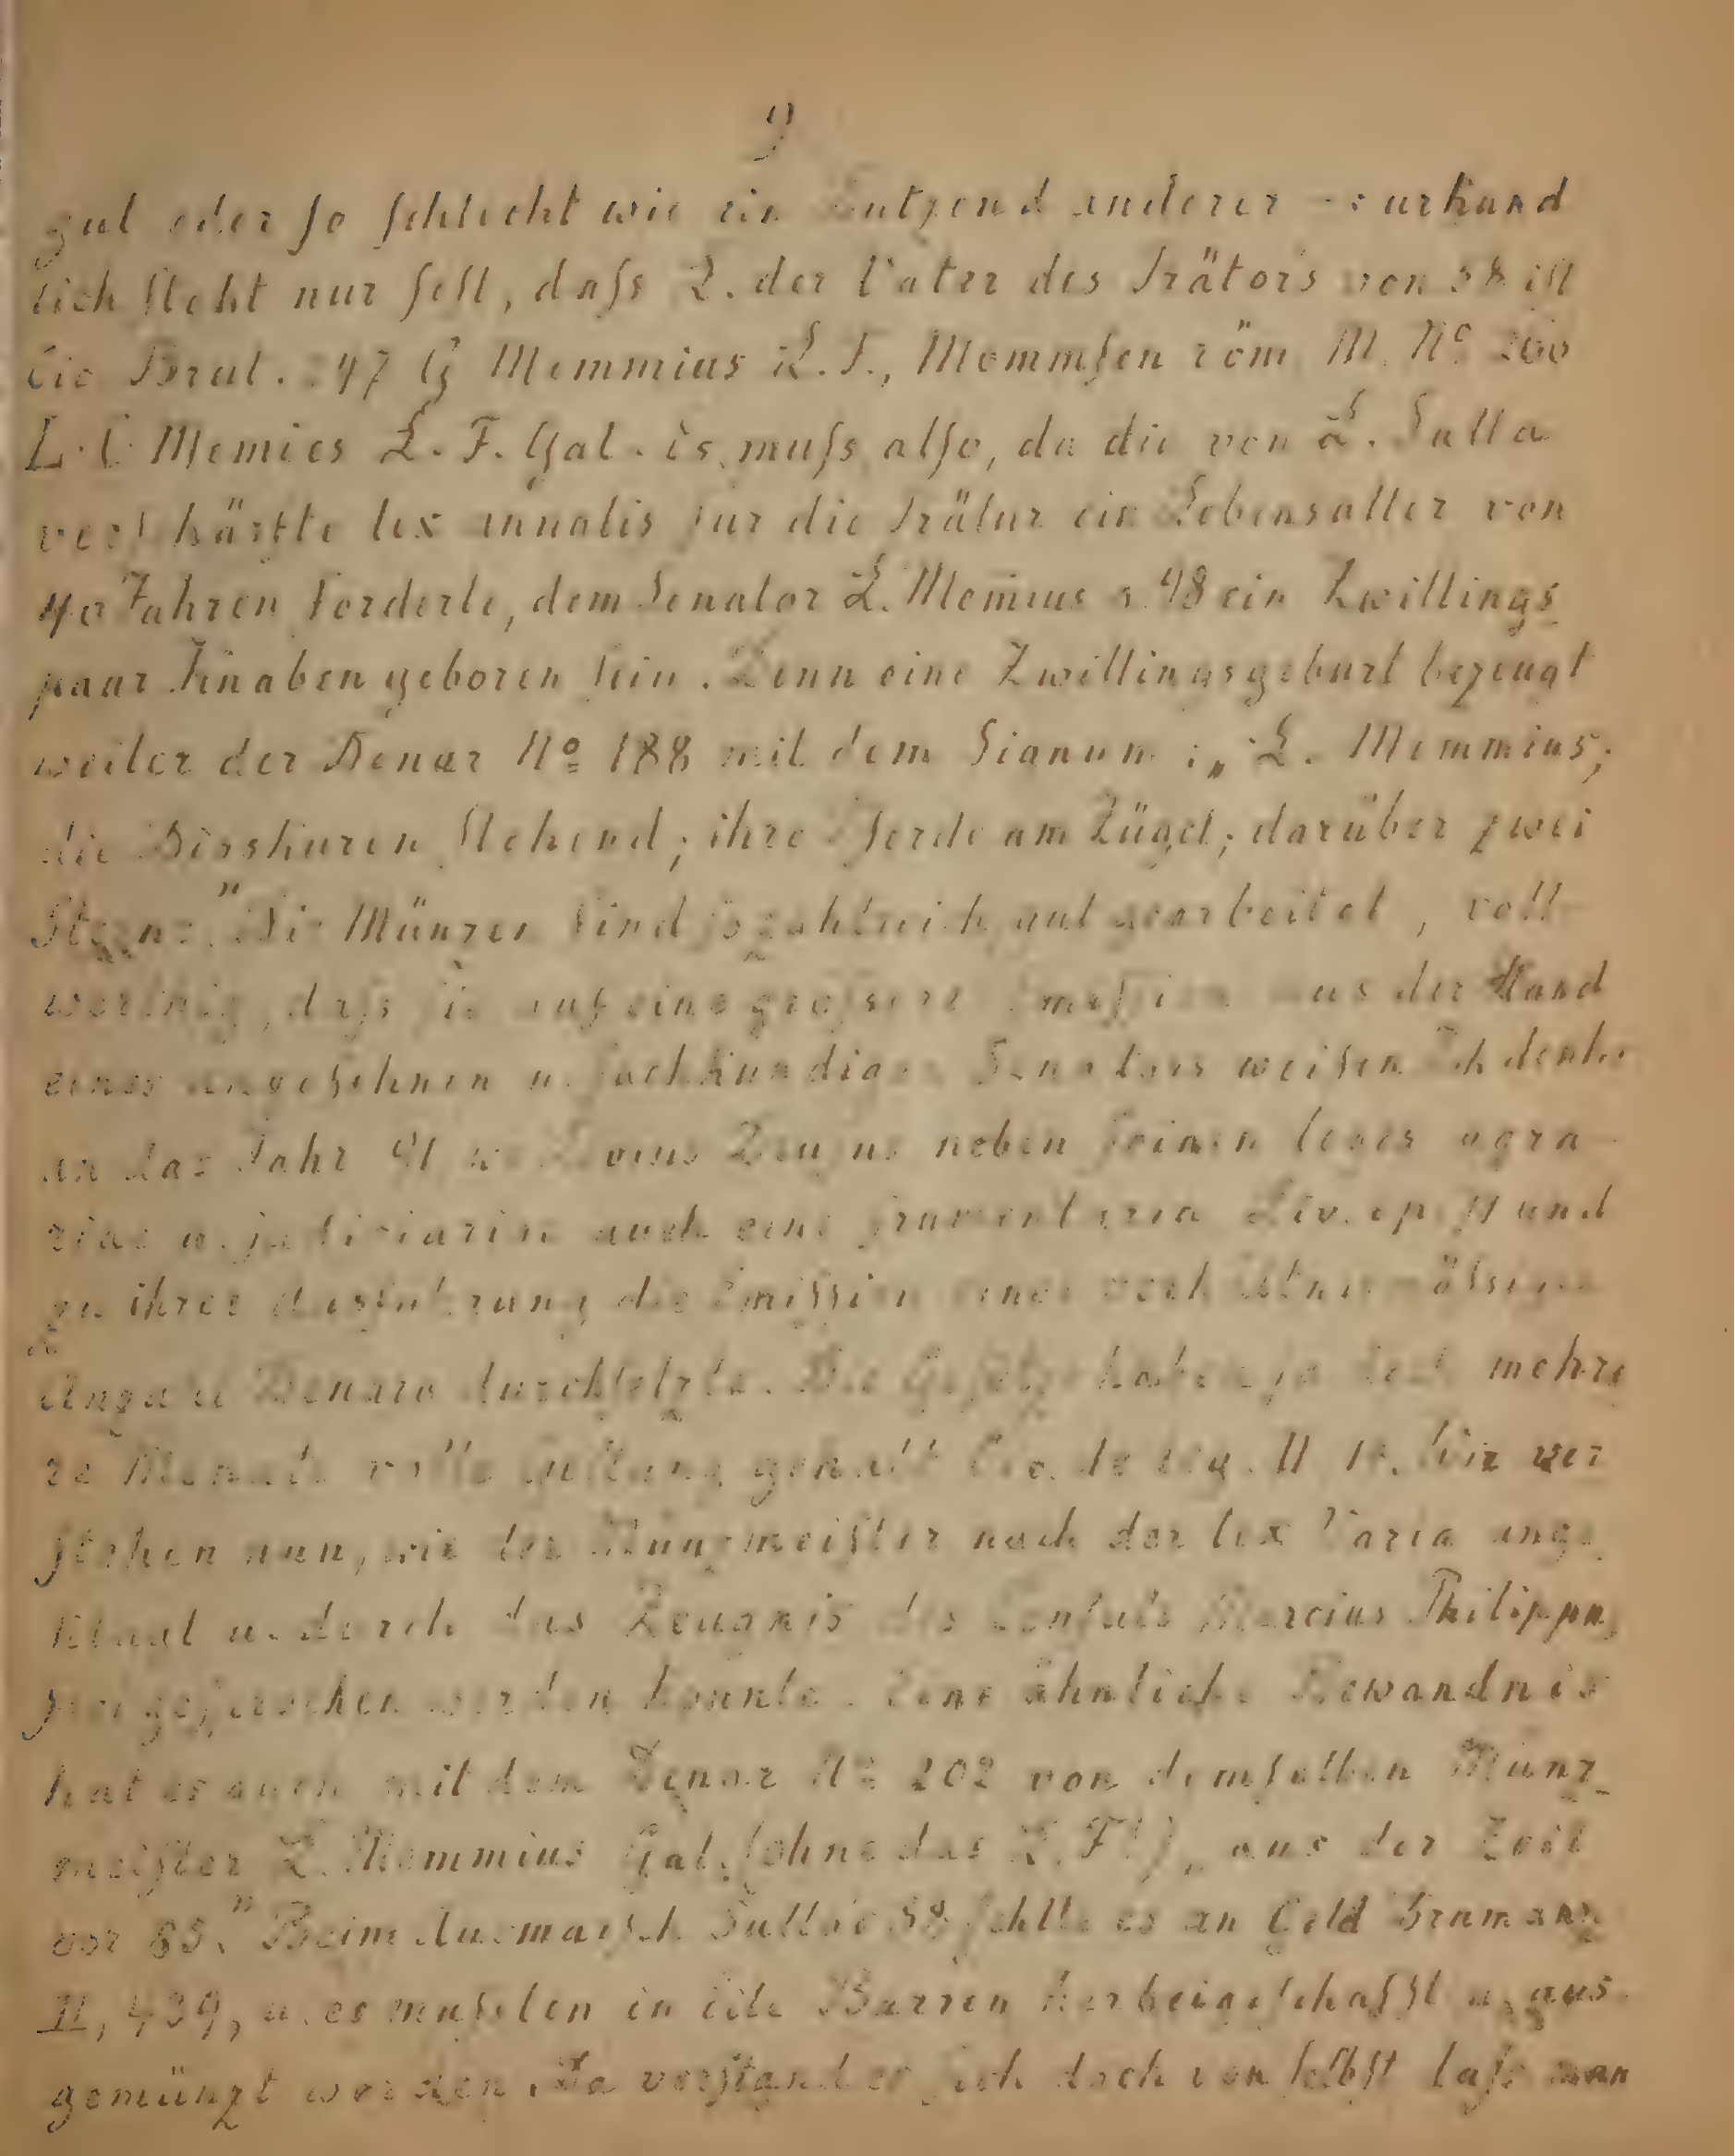 9
gut oder so schlecht wie ein Dutzend anderer - : urkund
lich steht nur fest, dass L. der Vater des Prätors von 58 ist
Cic Brut. 247 G Memmius L. F., Mommsen röm M. No 200
L. C. Memies L. F. Gal. Es muss also, da die von L. Sulla
verschärfte lex annalis für die Prätur ein Lebensalter von
40 Jahren forderte, dem Senator L. Memius a. 98 ein Zwillings
paar Knaben geboren sein. Denn eine Zwillingsgeburt bezeugt
weiter der Denar No 188 mit dem Signum: „L. Memmius;
die Dioskuren stehend; ihre Pferde am Zügel; darüber zwei
Sterne." Die Münzen sind so zahlreich, gut gearbeitet, voll-
wertig, dass sie auf eine grössere Emission aus der Hand
eines angesehnen u. sachkundigen Senators weisen. Ich denke
an das Jahr 91 wo Livius Drusus neben seinen leges agra-
riae u. judiciariae auch eine frumentaria Liv. ep. 71 und
zu ihrer Ausführung die Emission einer verhältnismässigen
Anzahl Denare durchsetzte. Die Gesetze haben ja doch mehre
re Monate volle Geltung gehabt Cic. de leg. II 14. Wir ver
stehen nun, wie der Münzmeister nach der lex Varia ange
klagt u. durch das Zeugnis des Consuls Marcius Philippus
freigesprochen werden konnte. Eine ähnliche Bewandnis
hat es auch mit dem Denar No 202 von demselben Münz-
meister L. Memmius Gal. (ohne das L. F!), „aus der Zeit
vor 85." Beim Ausmarsch Sullas 88 fehlte es an Geld
II, 439, u. es mussten in Eile Barren herbeigeschafft u. aus-
gemünzt werden. Da verstand es sich doch von selbst dass man